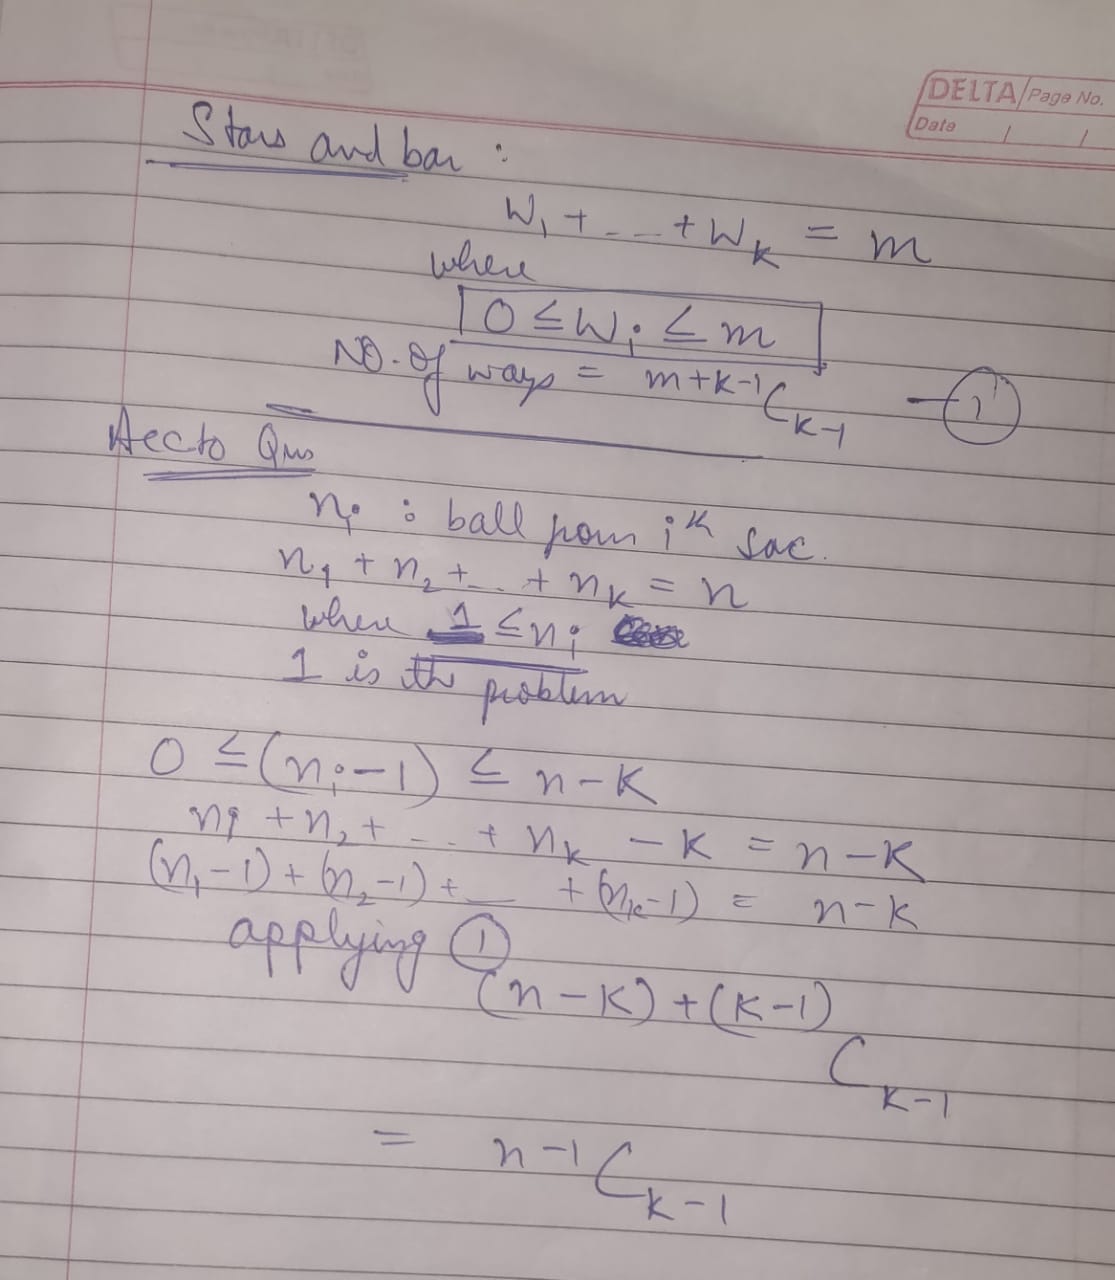 DELTA/Page No.
Date / /
Stars and bar :
W₁ + - - - + W_K = m
where
0 ≤ W_i ≤ m
NO. Of ways = ᵐ⁺ᴷ⁻¹C_K-1 — ①
Aecto Qus
n_i : ball from iᵗʰ sac.
n₁ + n₂ + - - + n_K = n
where 1 ≤ n_i
1 is the problem
0 ≤ (n_i - 1) ≤ n - K
n₁ + n₂ + - - - + n_K - K = n - K
(n₁ - 1) + (n₂ - 1) + __ + (n_K - 1) = n - K
applying ①
(n - K) + (K - 1)
C_K-1
= ⁿ⁻¹C_K-1